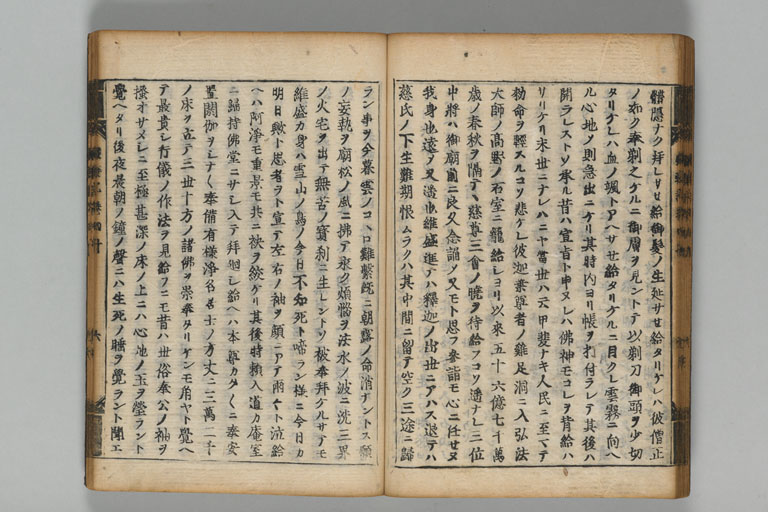 隠ナク拜レサセ給御髪ノ生延サセ給タリケレハ彼僧正
ノ如ク奉剃之ケルニ御膚ヲ見ントテ以剃刀御頭ヲ少切
タリケレハ血ノ颯トアヘサセ給タリケルニ目クレ雲霧ニ向ヘ
ル心地ノ則急出ニケリ其時内ヨリ帳ヲ打付ラレテ其後ハ
開ラレストソ承ル昔ハ宣旨ト申ヌレハ佛神モコレヲ背給ハ
サリケリ末世ニナレハニヤ當世ハ云甲斐ナキ人民ニ至マテ
勅命ヲ輕スルコソ悲ケレ彼迦葉尊者ノ雞足洞ニ入弘法
大師ノ高野ノ石室ニ籠給シヨリ以來五十六億七千萬
歳ノ春秋ヲ隔テ慈尊三會ノ曉ヲ待給フコソ遥ナレ三位
中將ハ御廟ニ良久念誦ノ又モト思フ參詣モ心ニ任セヌ
我身也遠ク又満也維盛進テハ釋迦ノ出世ニアハス退テハ
慈氏ノ下生難期恨ムラクハ其中間ニ留テ空ク三途ニ歸
ラン事ヲ今暮雲ノコヽロ雖繫既ニ朝露ノ命消ナントス願
ノ妄執ヲ廟松ノ風ニ拂テ永ク煩惱ヲ法水ノ波ニ洗三界
ノ火宅ヲ出テ無苦ノ寳刹ニ生レントソ被奉拜ケルサテモ
維盛カ身ハ雪山ノ鳥ノ今日不知死ト啼ラン樣ニ今日カ
明日歟ト思者ヲト宣テ左右ノ袖ヲ顔ニアテ雨々ト泣給
ヘハ阿淨モ重景モ共ニ袂ヲ絞ケリ其後時頼入道カ庵室
ニ歸持佛堂ニサシ入テ拜廻シ給ヘハ本尊カタ〱ニ奉安
置閼伽ヲシナ〱奉備有樣淨名居士ノ方丈ニ三萬二千
ノ床ヲ立テ三世十方ノ諸佛ヲ崇奉タリケンモ角ヤト覺ヘ
テ最貴シ行儀ノ作法ヲ見給フニモ昔ハ世俗奉公ノ袖ヲ
掻オサメシニ至極甚深ノ床ノ上ニハ心地ノ玉ヲ瑩ラント
覺ヘタリ後夜晨朝ノ鐘ノ聲ニハ生死ノ睡ヲ覺ラント聞エ